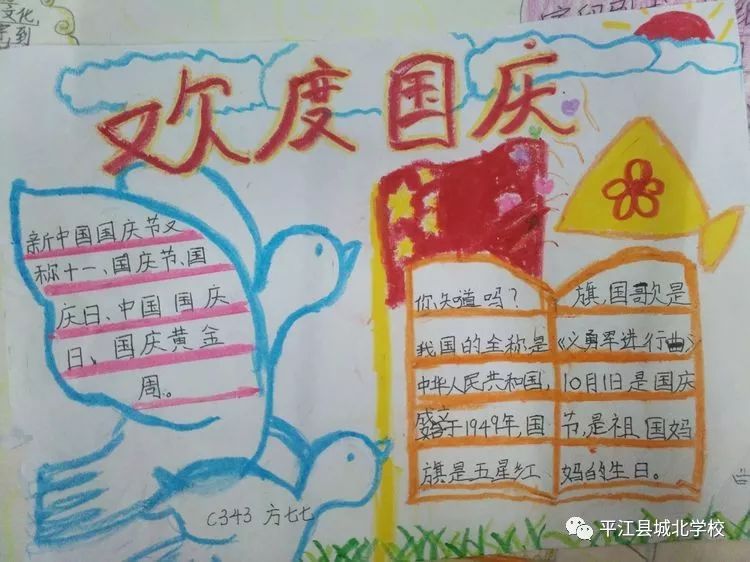 文化
到
欢度国庆
新中国国庆节又
称十一、国庆节、国
庆日、中国国庆
日、国庆黄金
周。
你知道吗？
我国的全称是
中华人民共和国，
成立于1949年，国
旗是五星红
旗，国歌是
《义勇军进行曲》
10月1日是国庆
节，是祖国妈
妈的生日。
C343 方七七
平江县城北学校